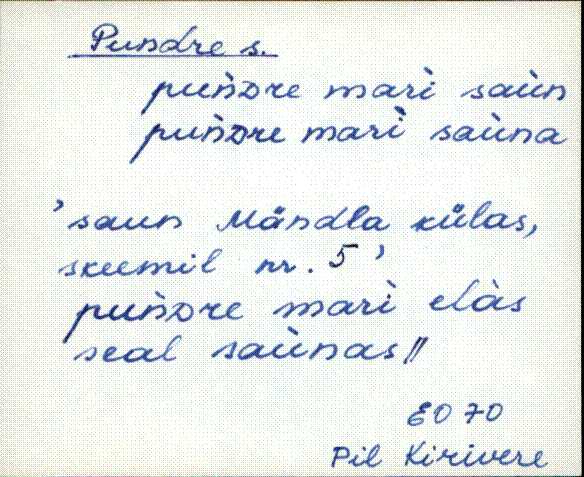 Pundre s.
puǹdre marì saùn
puǹdre marì saùna
’saun Mändla külas,
skeemil nr. 5’
puǹdre marì elàs
seal saùnas //
EO 70
Pil Kirivere